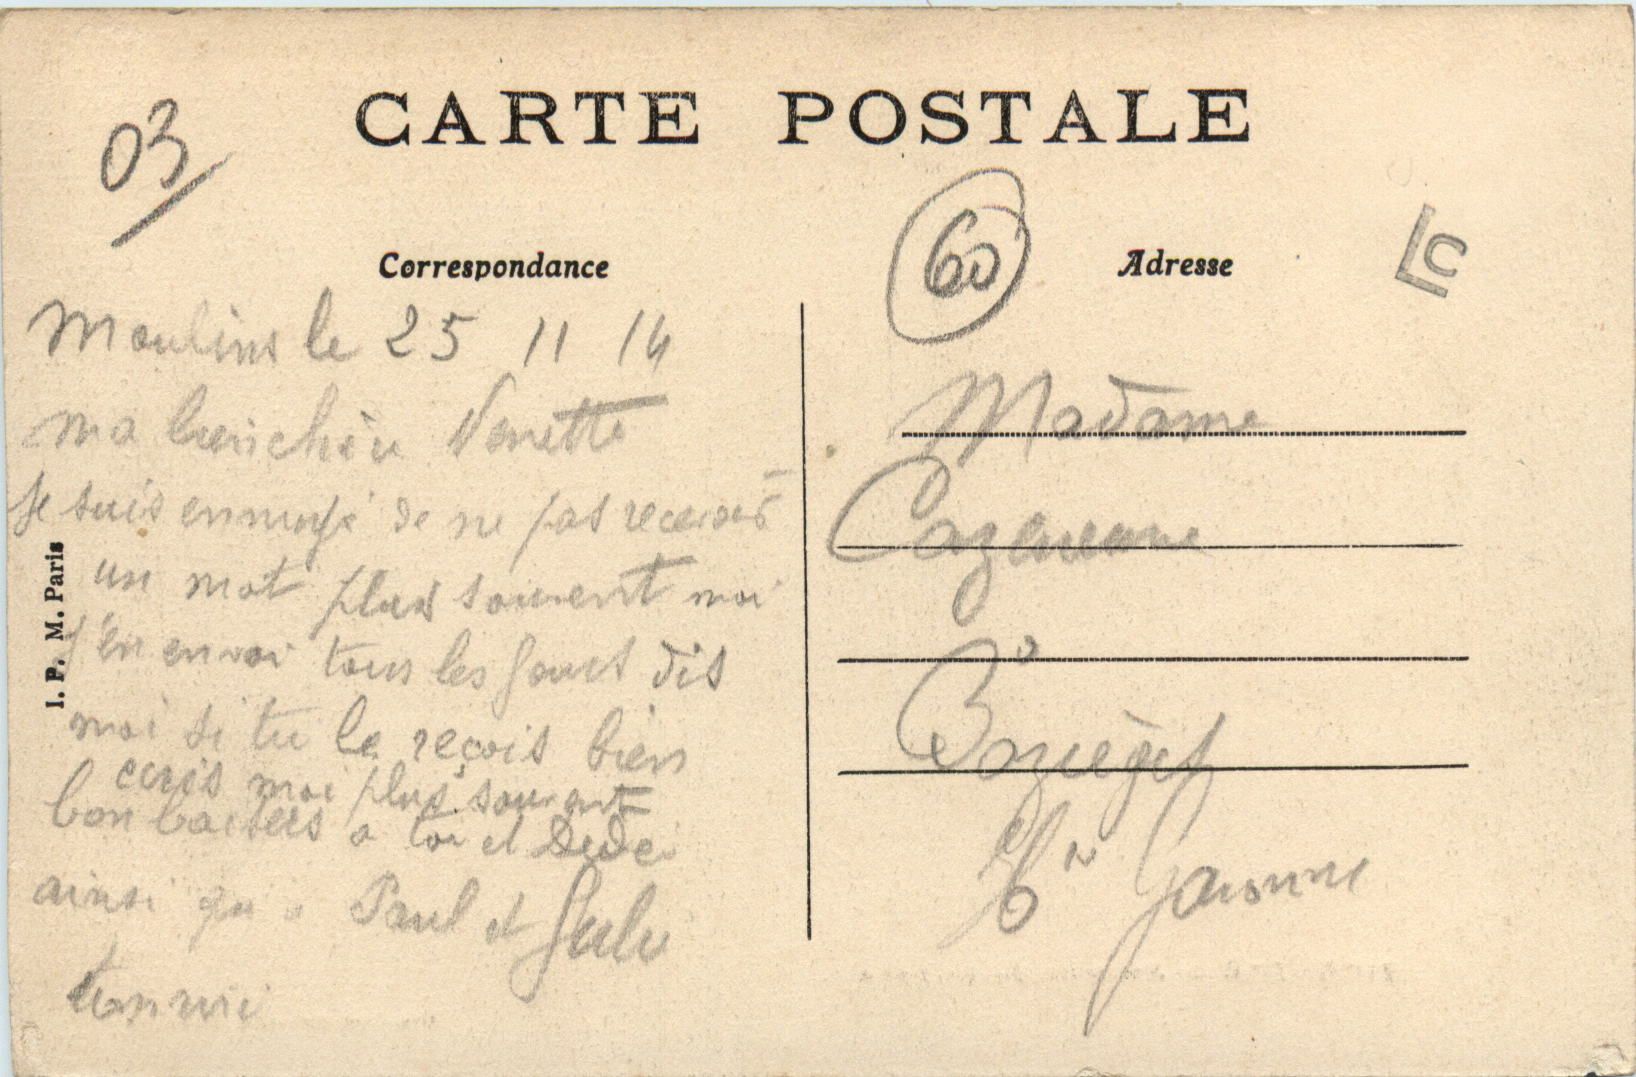 CARTE POSTALE
03
60
LC
Correspondance
Adresse
I. P. M. Paris
Moulins le 25 11 14
ma bien chère Nenette
Je suis ennuyé de ne pas recevoir
un mot plus souvent moi
j'en envoi tous les jours dis
moi si tu le reçois bien
ecris moi plus souvent
bon baisers a toi et Dede
ainsi qu'a Paul et
ton
Madame
Cazeneuve
Baziège
Hte Garonne